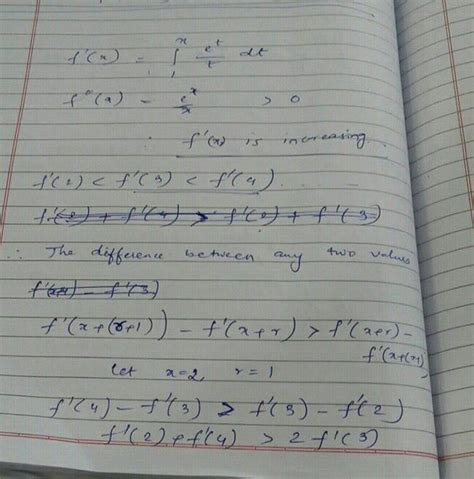 f'(x) = ∫₁ˣ eᵗ/t dt
f''(x) - eˣ/x > 0
f'(x) is increasing.
f'(2) < f'(3) < f'(4) ...
f'(2) + f'(4) > f'(2) + f'(3)
∴ The difference between any two values
f'(x+(r+1)) - f'(x+r) > f'(x+r) -
f'(x+(r-1))
let x=2, r=1
f'(4) - f'(3) > f'(3) - f'(2)
f'(2) + f'(4) > 2 f'(3)